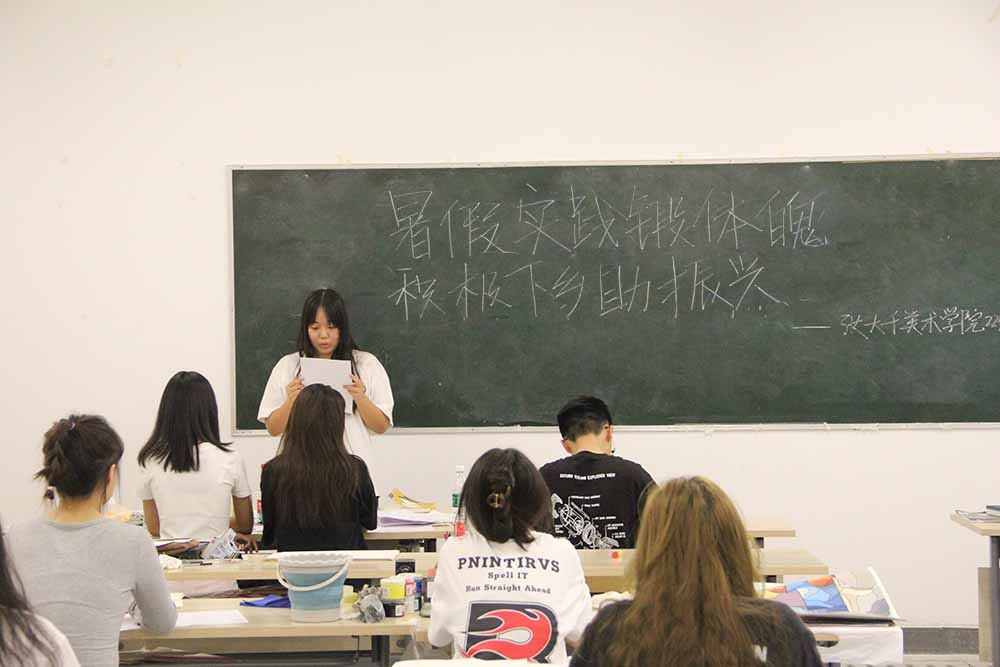 暑假实践锻体魄
积极下乡助振兴
——张大千美术学院
PNINTIRVS
Spell IT
Run Straight Ahead